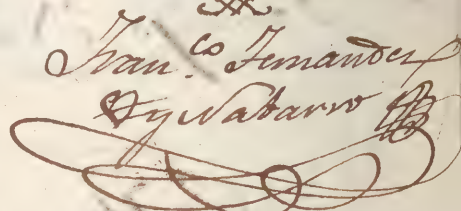 Fran.co Fernandez
y Nabarro